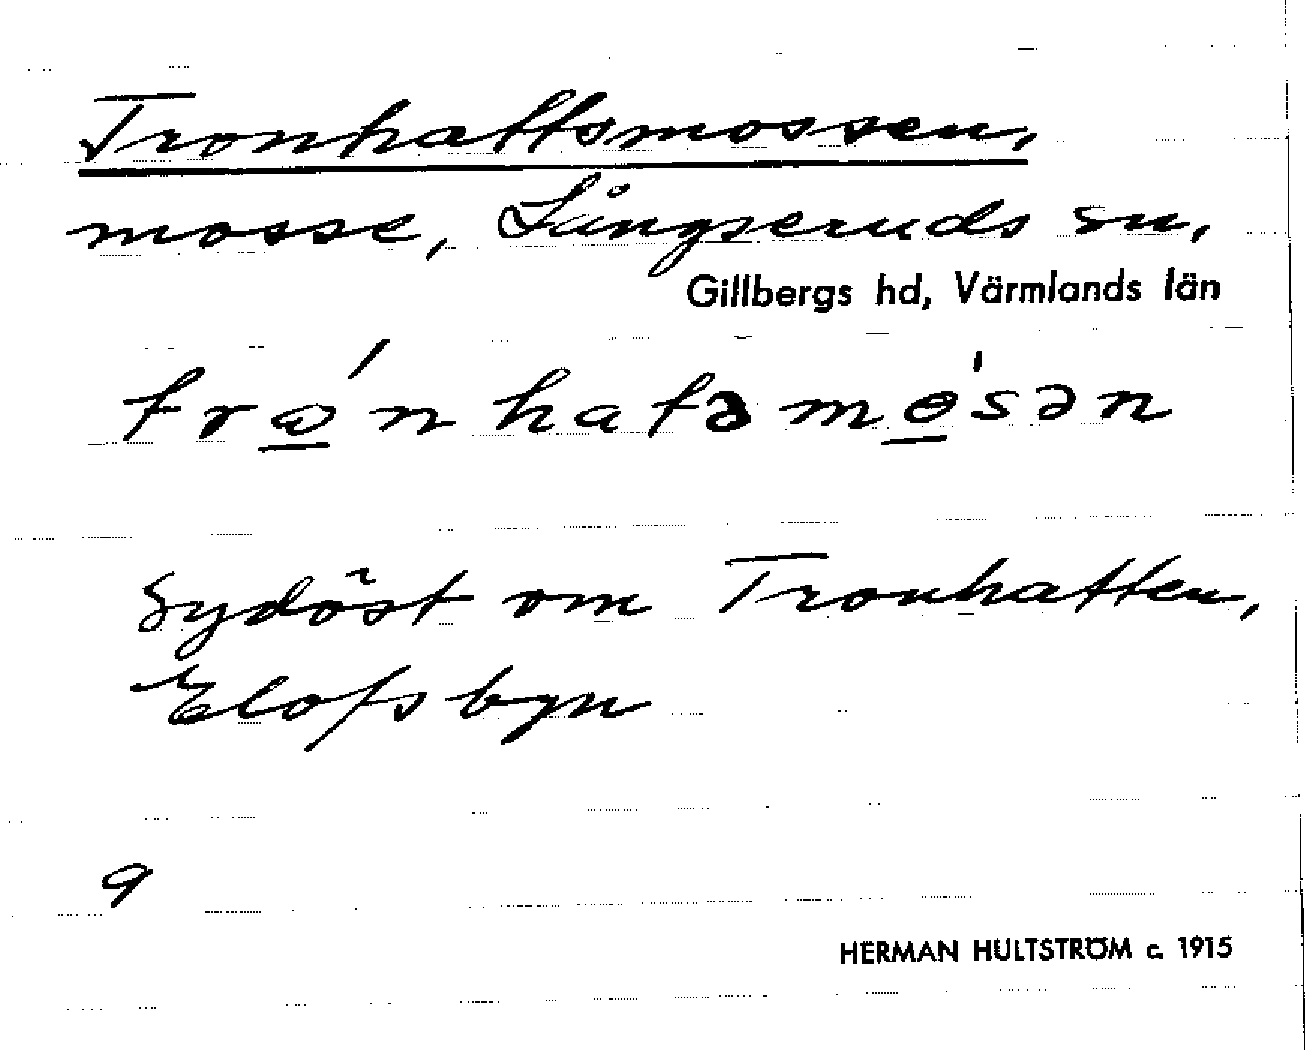 Tronhattsmossen,
mosse, Långseruds sn,
Gillbergs hd, Värmlands län
trώnhatəmɵ'sən
Sydöst om Tronhatten,
Elofsbyn
9
HERMAN HULTSTRÖM c. 1915